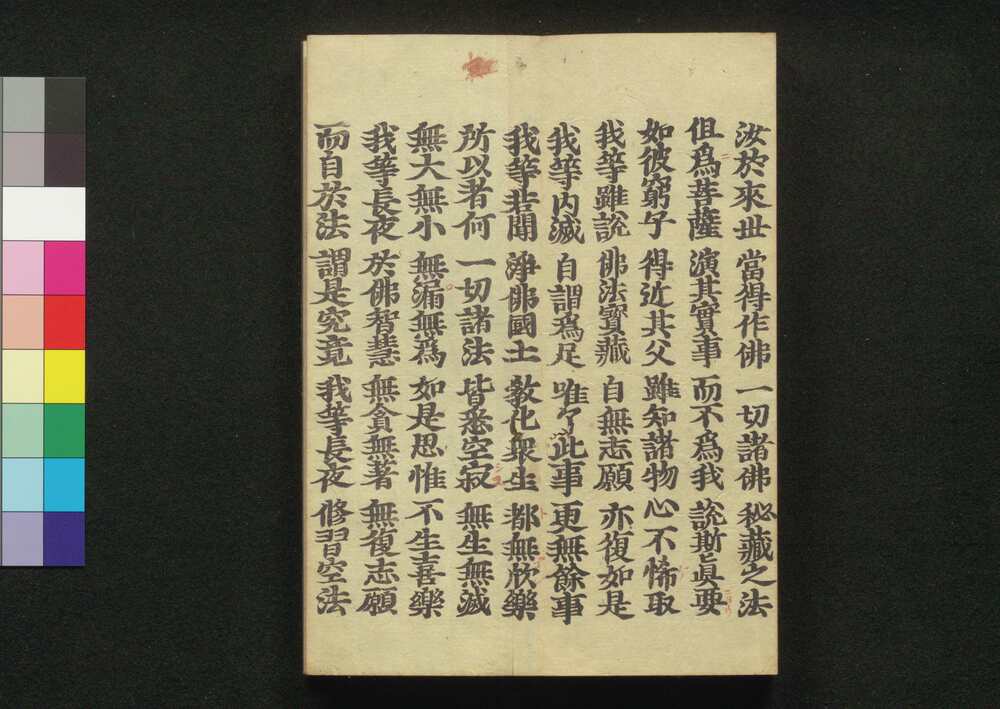 汝於來世　當得作佛　一切諸佛　秘藏之法
但爲菩薩　演其實事　而不爲我　說斯眞要
如彼窮子　得近其父　雖知諸物　心不悕取
我等雖說　佛法寶藏　自無志願　亦復如是
我等內滅　自謂爲足　唯了此事　更無餘事
我等若聞　淨佛國土　敎化衆生　都無欣樂
所以者何　一切諸法　皆悉空寂　無生無滅
無大無小　無漏無爲　如是思惟　不生喜樂
我等長夜　於佛智慧　無貪無著　無復志願
而自於法　謂是究竟　我等長夜　修習空法